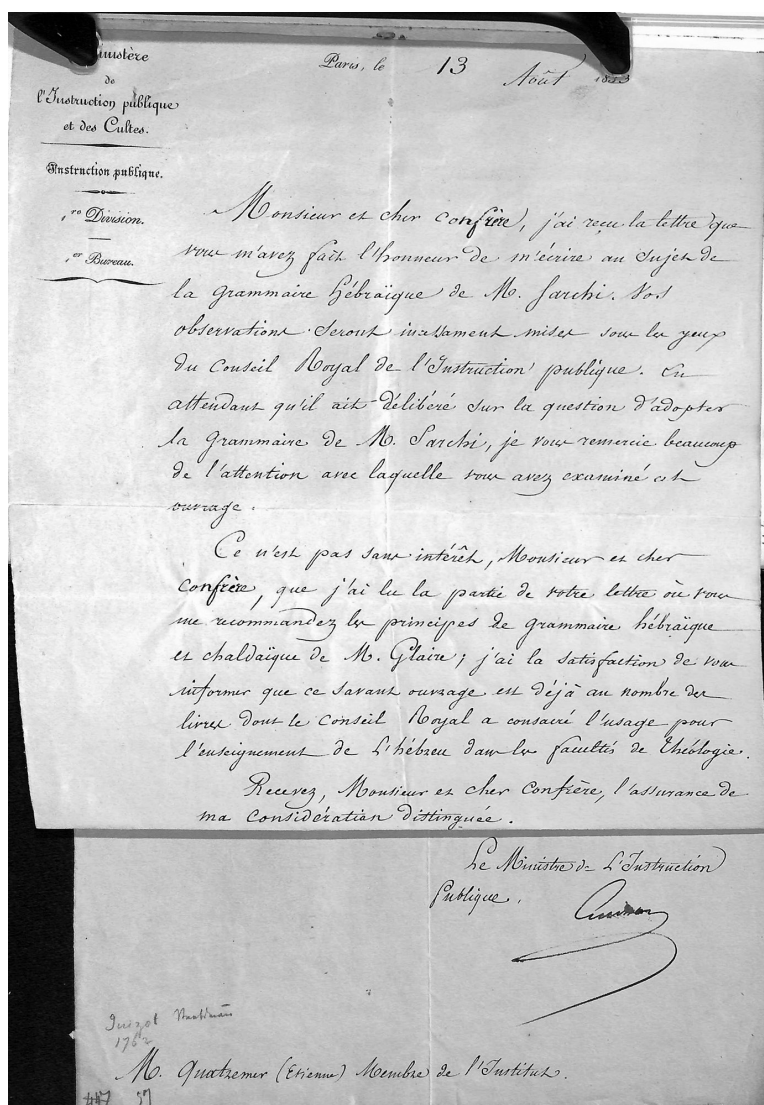 Ministère
de
l'Instruction publique
et des Cultes.
Instruction publique.
1re Division.
1er Bureau.
Paris, le 13 Août
Monsieur et cher confrère, j'ai reçu la lettre que
vous m'avez fait l'honneur de m'écrire au sujet de
la grammaire hébraïque de M. Sarchi. Vos
observations seront incessament mises sous les yeux
du Conseil Royal de l'Instruction publique. En
attendant qu'il ait délibéré sur la question d'adopter
la grammaire de M. Sarchi, je vous remercie beaucoup
de l'attention avec laquelle vous avez examiné cet
ouvrage.
Ce n'est pas sans intérêt, Monsieur et cher
confrère, que j'ai lu la partie de votre lettre où vous
me recommandez les principes de grammaire hébraïque
et chaldaïque de M. Glaire; j'ai la satisfaction de vous
informer que ce savant ouvrage est déjà au nombre des
livres dont le Conseil Royal a consacré l'usage pour
l'enseignement de l'hébreu dans les facultés de théologie.
Recevez, Monsieur et cher Confrère, l'assurance de
ma considération distinguée.
Le Ministre de l'Instruction
Publique.
Guizot
1762
M. Quatremer (Etienne) Membre de l'Institut.
57